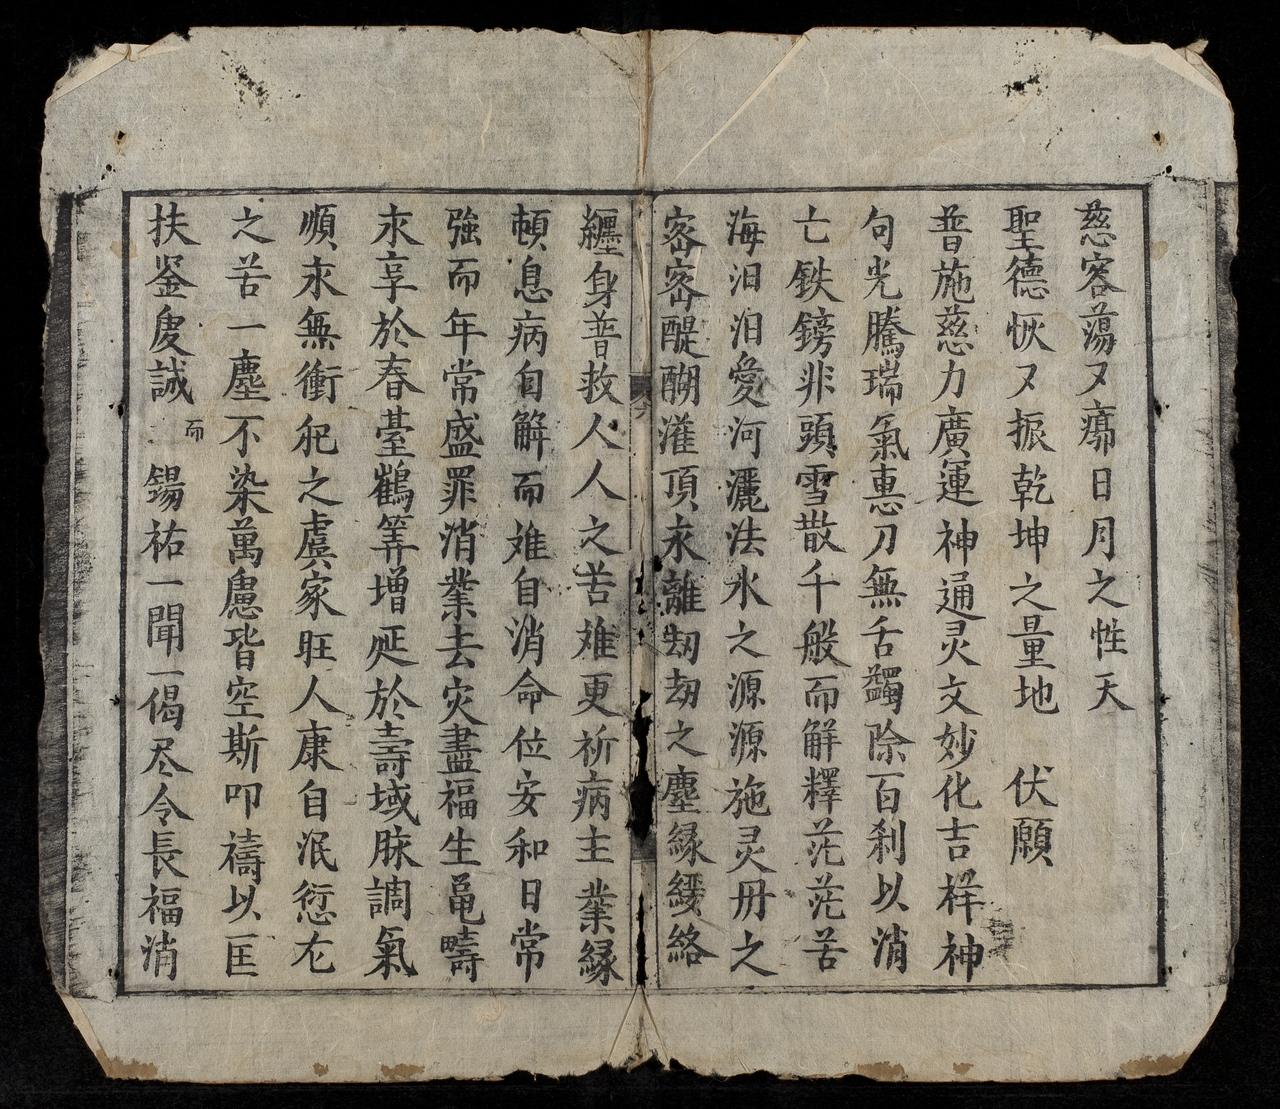 慈容蕩又廓日月之性天
聖德恢又振乾坤之量地　伏願
普施慈力廣運神通灵文妙化吉祥神
句光騰瑞氣惠刀無舌蠲除百刹以消
亡鉄鎊非頭雪散千般而觧釋茫茫苦
海汨汨愛河灑法水之源源施灵丹之
密密醍醐灌頂永離刼刼之塵緣纓絡
纒身普救人人之苦难更祈病主業緣
頓息病自觧而难自消命位安和日常
強而年常盛罪消業去灾盡福生黾疇
永享於春臺鶴筭增延於壽域脉調氣
順永無衝犯之虞家旺人康自泯愆尤
之苦一塵不染萬慮皆空斯叩禱以匡
扶鉴虔誠而　錫祐一聞一偈尽令長福消
六